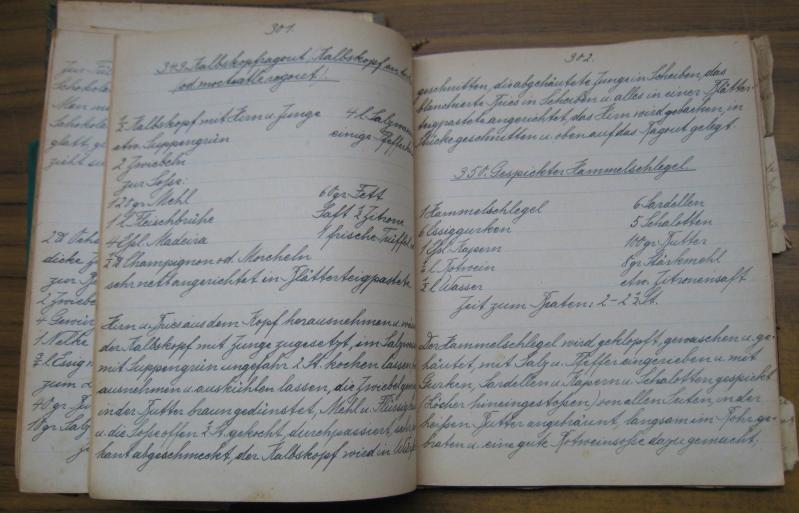 zur Fül
Schokola
Man
Schokola
glatt, g
zieht su
2 ℔ Ochs
dicke
zur B
2 Zwiebe
4 Gewür
1 Nelke
½ l Essig
zum
40 gr Bu
10 gr Salz
301.
349. Kalbskopfragout (Kalbskopf en
od. mocturtleragout).
½ Kalbskopf mit Hirn u. Zunge 4 l Salzwass
etw. Suppengrün einige Pfeffer
2 Zwiebeln
zur Soße:
120 gr Mehl 60 gr Fett
1 l Fleischbrühe Saft ½ Zitrone
4 Eßl. Madeira 1 frische Trüffel
½ ℔ Champignon od. Morcheln
sehr nett angerichtet in Blätterteigpastete
Hirn u. Bries aus dem Kopf herausnehmen u.
der Kalbskopf mit Zunge zugesetzt, im Salzwas
mit Suppengrün ungefähr 2 St. kochen lassen,
ausnehmen u. auskühlen lassen, die Zwiebel
in der Butter braungedünstet, Mehl u. Flüssig
u. die Soße offen ½ St. gekocht, durchpassiert,
kant abgeschmeckt, der Kalbskopf wird in Würf
302.
geschnitten, die abgehäutete Zunge in Scheiben, das
blanchierte Bries in Scheiben u. alles in einer Blätter-
teigpastete angerichtet, das Hirn wird gebacken, in
Stücke geschnitten u. oben auf das Ragout gelegt.
350. Gespickter Hammelschlegel.
1 Hammelschlegel 6 Sardellen
6 Essiggurken 5 Schalotten
1 Eßl. Kapern 100 gr Butter
½ l Rotwein 8 gr Stärkmehl
½ l Wasser etw. Zitronensaft
Zeit zum Braten: 2 - 2½ St.
Der Hammelschlegel wird geklopft, gewaschen u. ge-
häutet, mit Salz u. Pfeffer eingerieben u. mit
Gurken, Sardellen u. Kapern u. Schalotten gespickt
(Löcher hineingestoßen) von allen Seiten, in der
heißen Butter angebräunt, langsam im Rohr ge-
braten u. eine gute Rotweinsoße dazu gemacht;